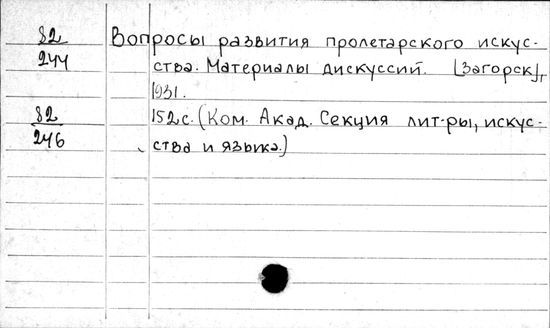 82 Вопросы развития пролетарского искус-
244 ства. Материалы дискуссий. [Загорск],
1931.
82 152с. (Ком. Акад. Секция лит-ры, искус-
246 ства и языка.)